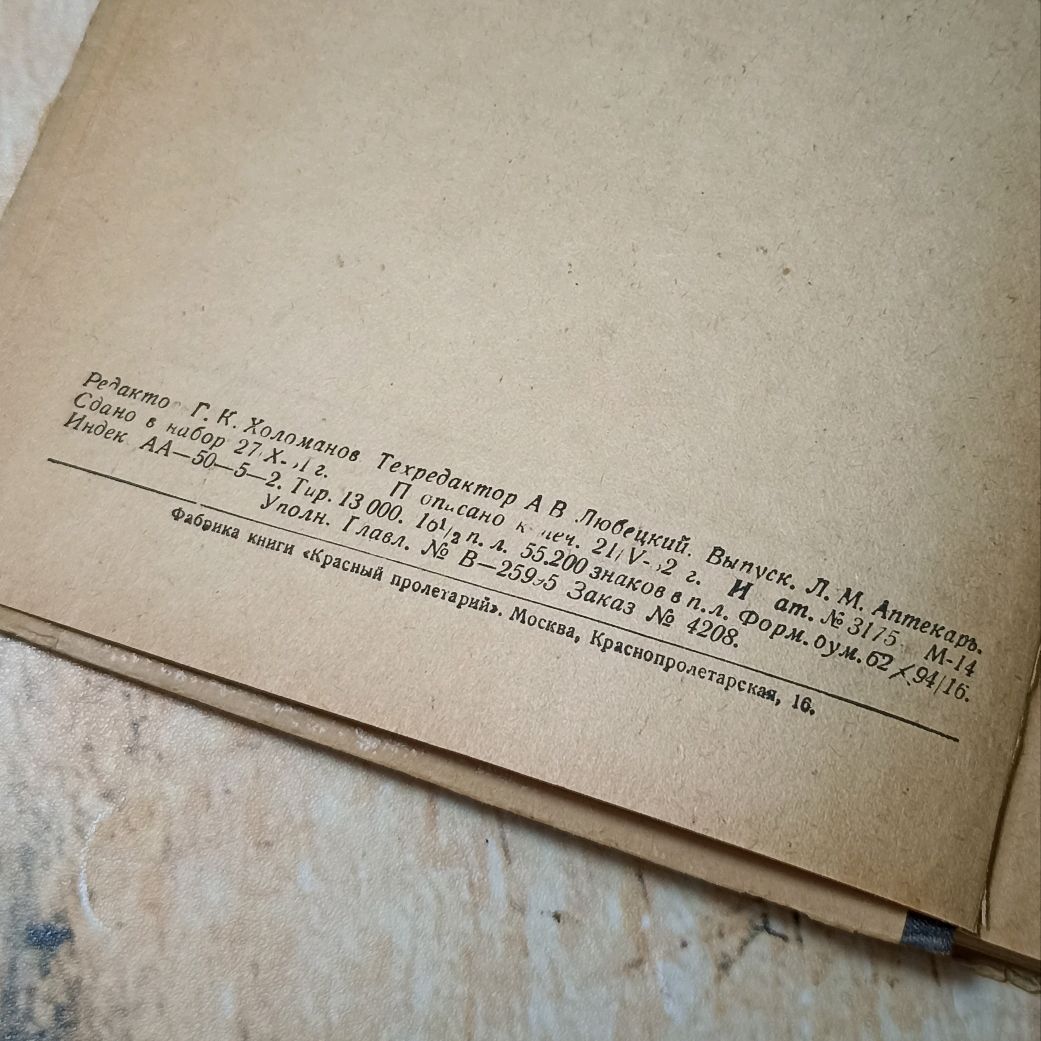 Редактор Г. К. Холоманов. Техредактор А. В. Любецкий. Выпуск. Л. М. Аптекарь.
Сдано в набор г. Подписано к печ. г. № 3175. М-14
Индек АА—50—5—2. Тир. 13 000. 16½ п. л. 55.200 знаков в п. л. Форм. бум. 62 × 94/16.
Уполн. Главл. № Заказ № 4208.
Фабрика книги «Красный пролетарий». Москва, Краснопролетарская, 16.